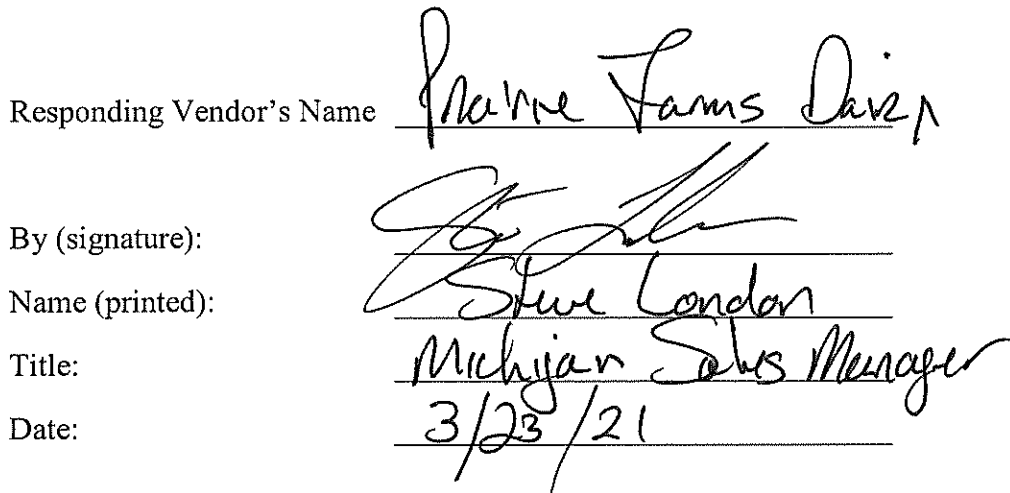 Responding Vendor's Name Prairie Farms Dairy
By (signature):
Name (printed): Steve London
Title: Michigan Sales Manager
Date: 3/23/21